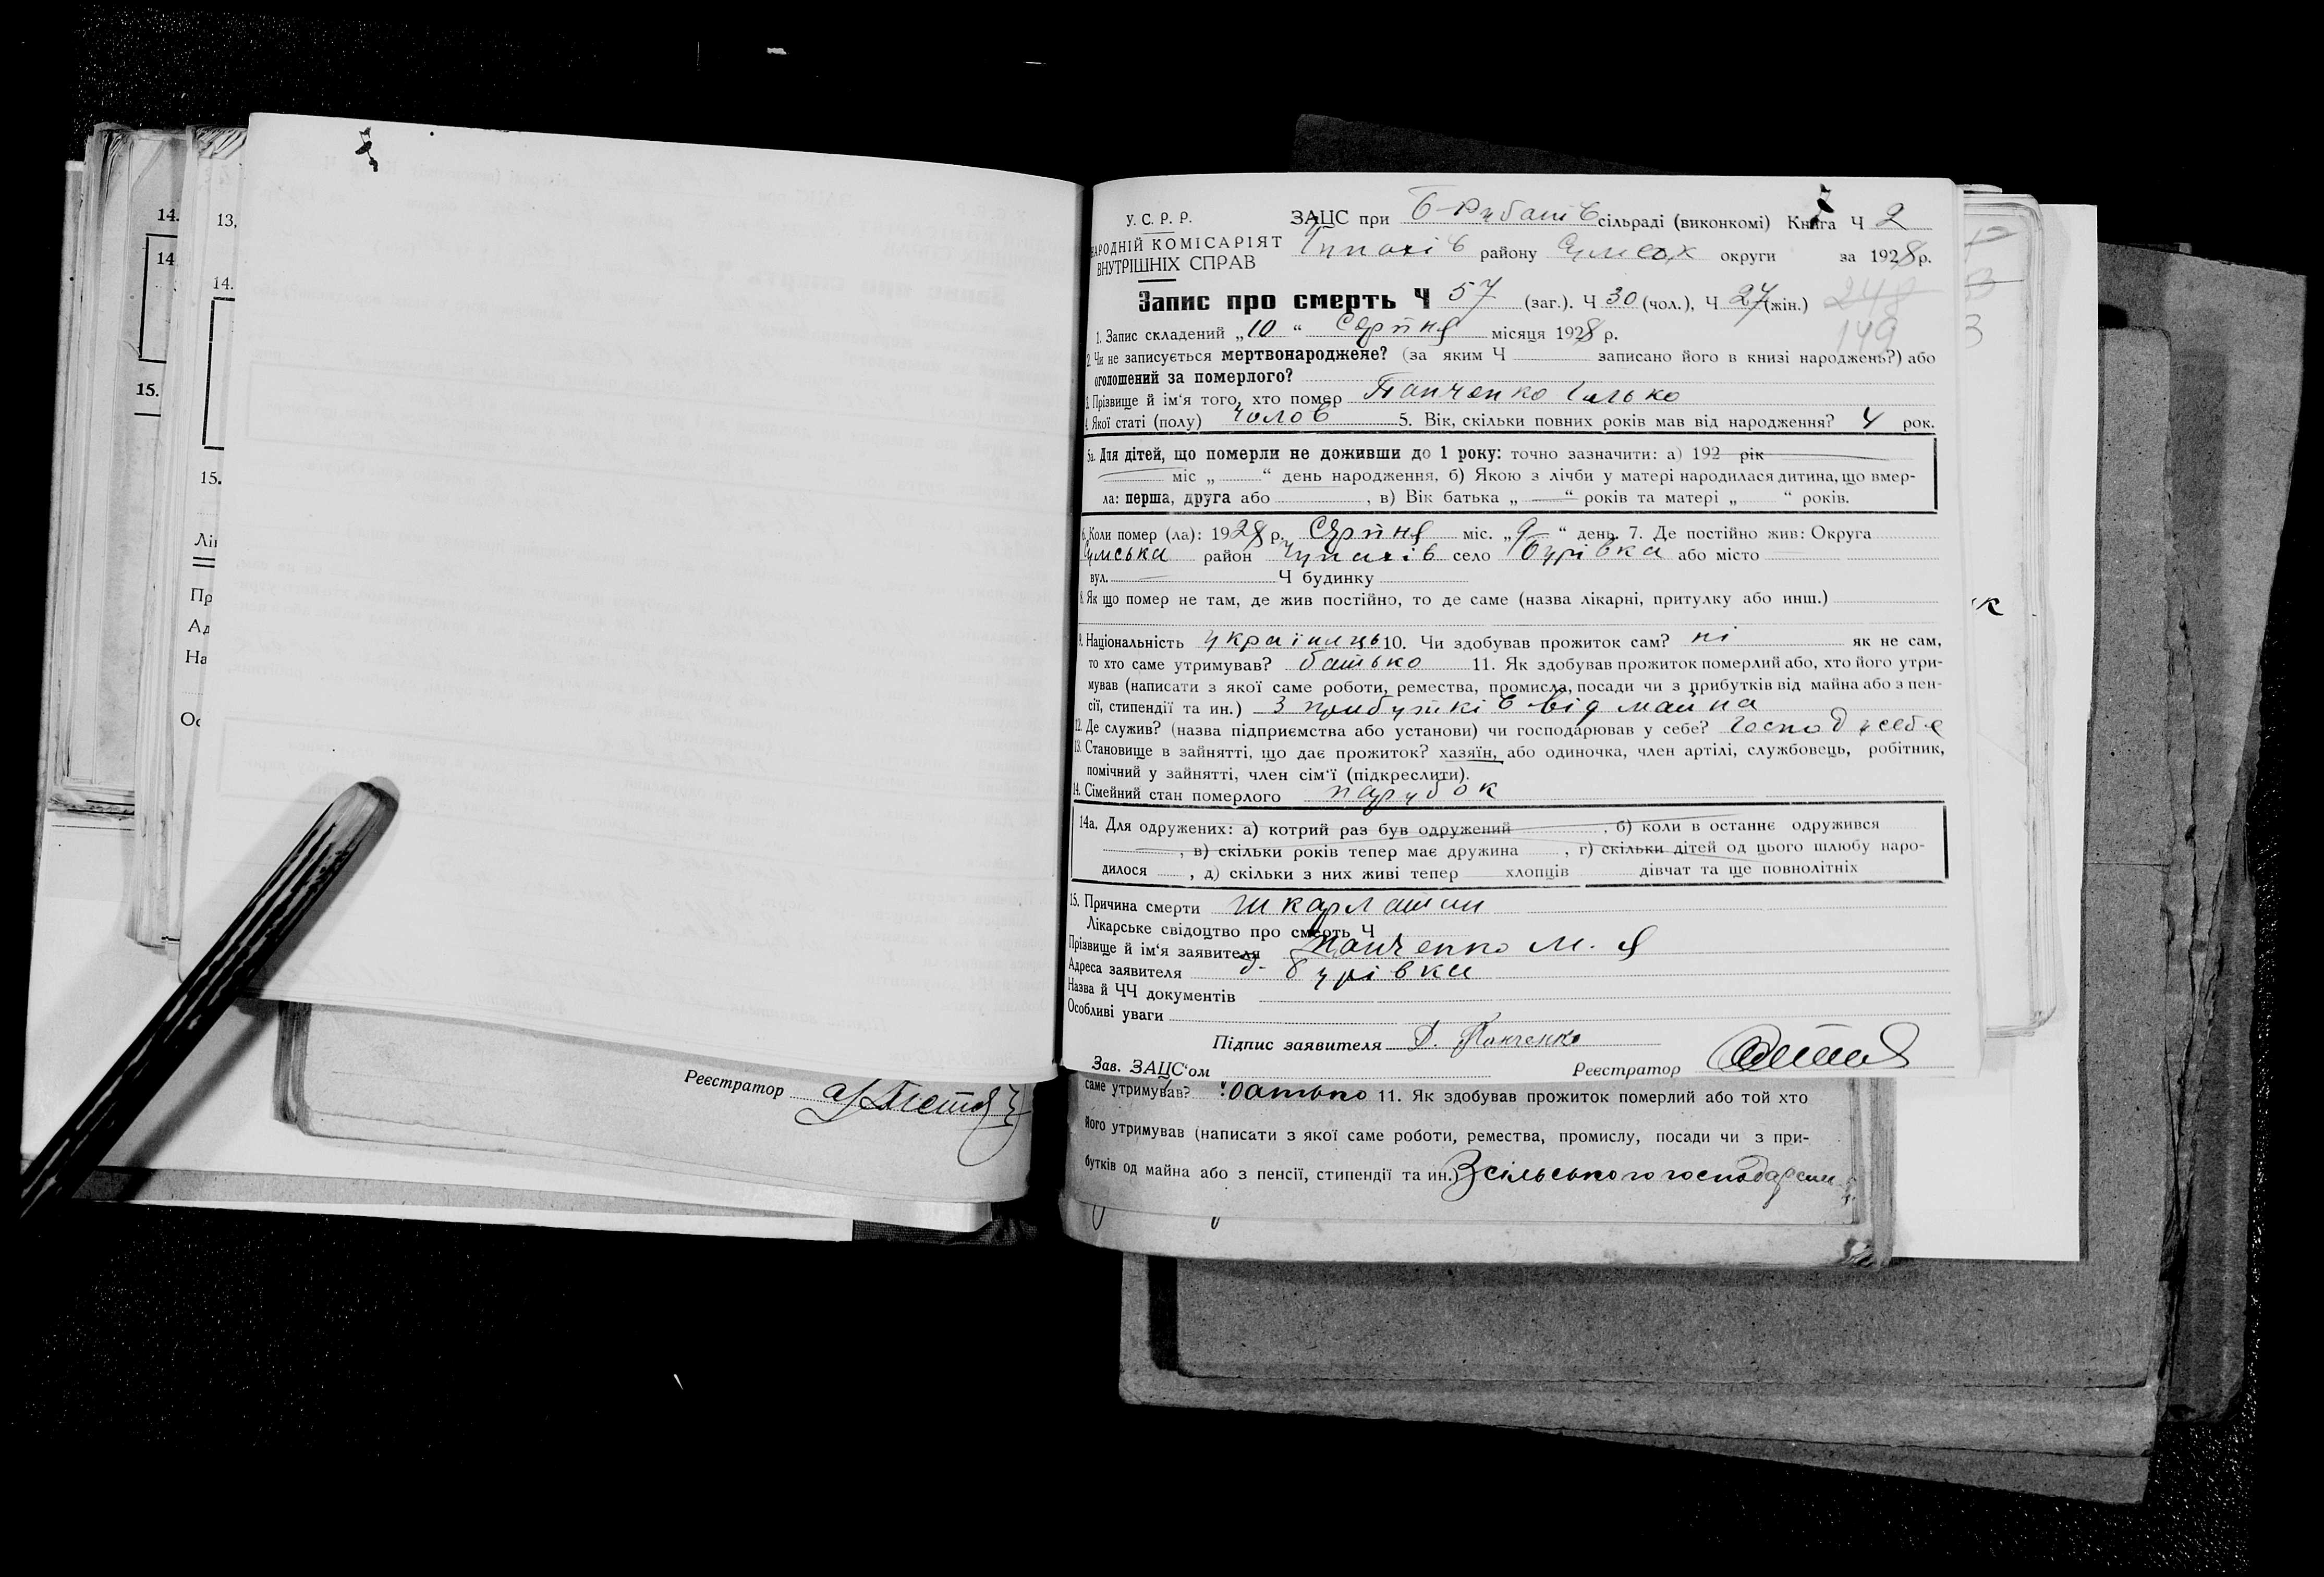 14.
14
15.
13,
14.
15.
Лі
Пр
Ад
На
Ос
Реєстратор
У. С. Р. Р.
НАРОДНІЙ КОМІСАРІЯТ
ВНУТРІШНІХ СПРАВ
ЗАЦС при Б-Рибанів сільраді (виконкомі) Книга Ч 2
Чупахів району Сумськ округи за 1928 р.
Запис про смерть Ч 57 (заг.). Ч 30 (чол.), Ч 27 (жін.)
248
149
1. Запис складений „10“ Серпня місяця 1928 р.
2. Чи не записується мертвонароджене? (за яким Ч записано його в книзі народжень?) або
оголошений за померлого?
3. Прізвище й ім‘я того, хто помер Панченко Ілько
4. Якої статі (полу) чолов 5. Вік, скільки повних років мав від народження? 4 рок.
5а. Для дітей, що померли не доживши до 1 року: точно зазначити: а) 192 рік
міс „ “ день народження, б) Якою з лічби у матері народилася дитина, що вмер-
ла: перша, друга або , в) Вік батька „ “ років та матері „ “ років.
6. Коли помер (ла): 1928 р. Серпня міс. „9“ день. 7. Де постійно жив: Округа
Сумська район Чупахів село Бурівка або місто
вул. Ч будинку
8. Як що помер не там, де жив постійно, то де саме (назва лікарні, притулку або инш.)
9. Національність українць 10. Чи здобував прожиток сам? ні як не сам,
то хто саме утримував? батько 11. Як здобував прожиток померлий або, хто його утри-
мував (написати з якої саме роботи, ремества, промисла, посади чи з прибутків від майна або з пен-
сії, стипендії та ин.) З прибутків від майна
12. Де служив? (назва підприємства або установи) чи господарював у себе? Господ у себе
13. Становище в зайнятті, що дає прожиток? хазяїн, або одиночка, член артілі, службовець, робітник,
помічний у зайнятті, член сім‘ї (підкреслити).
14. Сімейний стан померлого парубок
14а. Для одружених: а) котрий раз був одружений , б) коли в останнє одружився
, в) скільки років тепер має дружина , г) скільки дітей од цього шлюбу наро-
дилося , д) скільки з них живі тепер хлопців дівчат та ще повнолітніх
15. Причина смерти шкарлатин
Лікарське свідоцтво про смерть Ч
Прізвище й ім‘я заявителя Панченко М. Я
Адреса заявителя д. Бурівка
Назва й ЧЧ документів
Особливі уваги
Підпис заявителя Д. Панченко
Зав. ЗАЦС‘ом Реєстратор
саме утримував? батько 11. Як здобував прожиток померлий або той хто
його утримував (написати з якої саме роботи, ремества, промислу, посади чи з при-
бутків од майна або з пенсії, стипендії та ин.) З сільського господарств